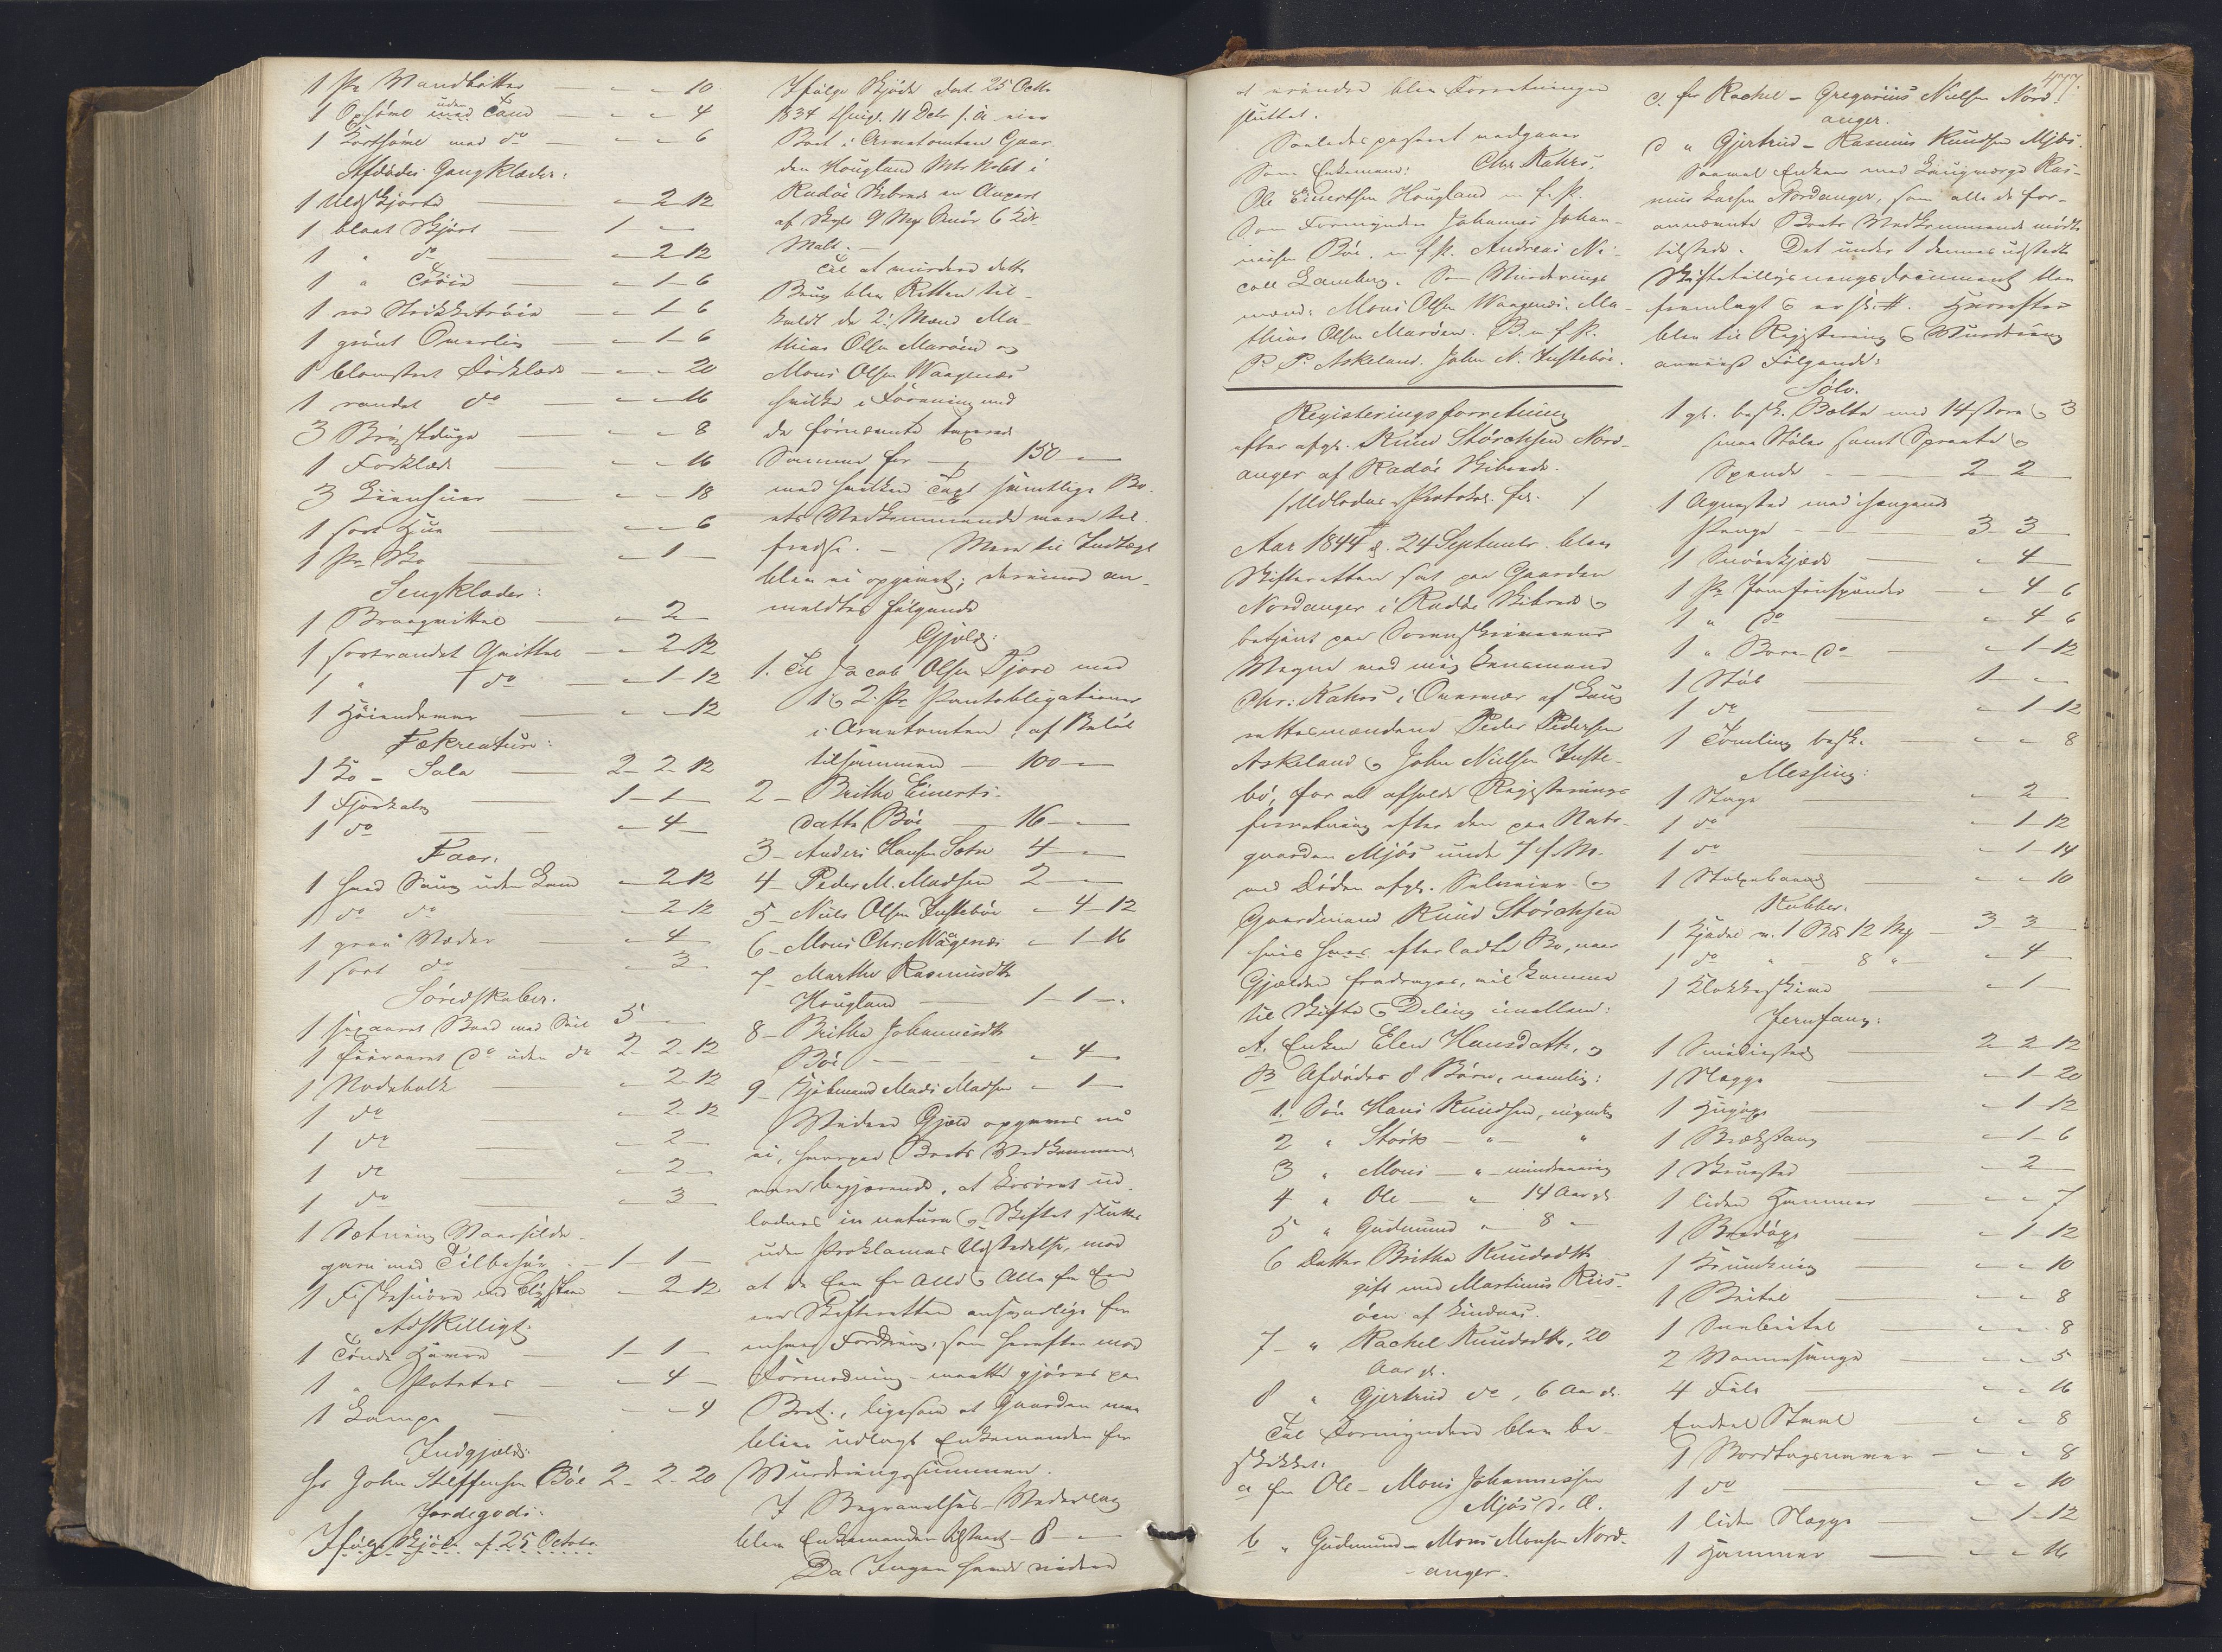 1 Pr Vandbøtter — " — " — 10
1 Opsøml uden Tand — " — " — 4
1 Kortsøml med do — " — " — 6
Afdødes Gangklæder:
1 Uldskjorte — " — 2 — 12
1 blaat Skjørt — 1 — "
1 " do — " — 2 — 12
1 " Trøie — " — 1 — 6
1 rød Strikketrøie — " — 1 — 6
1 grønt Overliv — " — 1 — 6
1 blomstret Forklæde — " — " — 20
1 randet do — " — " — 16
3 Brystduge — " — " — 8
1 Forklæde — " — " — 16
3 Linhuer — " — " — 18
1 sort Hue — " — " — 6
1 Pr Sko — " — 1 —
Sengklæder:
1 Braaqvittel — " — 2 —
1 sortrandet Qvittel — " — 2 — 12
1 " do — " — 1 — 12
1 Høiendevaar — " — " — 12
Fækreature:
1 Ko — Sala — 2 — 2 — 12
1 Fjorkalv — 1 — 1 —
1 do — " — 4 —
Faar.
1 hvid Saug uden Lam — " — 2 — 12
1 do do — " — 2 — 12
1 graa Væder — " — 4 —
1 sort do — " — 3 —
Søredskaber.
1 sexaaret Baad med Seil 5 —
1 fiiraaret do uden do 2 — 2 — 12
1 Nodebolk — " — 2 — 12
1 do — " — 2 — 12
1 do — " — 2 —
1 do — " — 2 —
1 do — " — 3 —
1 Sætning Vaarsilde-
garn med Tilbehør — 1 — 1 —
1 Fiskesnøre med — " — 2 — 12
Adskilligt:
1 Tønde Havre — 1 — 1 —
1 " Potetes — " — 4 —
1 Lampe — " — " — 4
Indgjæld:
hos John Steffensen Bøe 2 — 2 — 20
Jordegods:
Ifølge Skjøde af 25 Octobr.
Ifølge Skjøde dat. 25 Octbr
1834 thingl. 11 Decbr s. A. eier
Boet i Arnetomten Gaar-
den Hougland Mtr No i
Radøe Skibrede en Anpart
af Skyld 9 Mrk Smør 6 Kdr
Malt. —
Til at vurdere dette
Brug blev Retten til-
kaldt de 2: Mænd Ma-
thias Olsen Marøen og
Mons Olsen Vaagenæs
hvilke i Forening med
de førnævnte taxerede
Samme for — 150 — "
med hvilken Taxt samtlige Bo-
ets Vedkommende vare til-
fredse. — Mere til Indtægt
blev ei opgivet; derimod an-
meldtes følgende
Gjæld:
1. Til Jacob Olsen Fjore med
1 & 2. Pr. Pantobligationer
i Arnetomten, af Beløb
tilsammen — 100 — "
2 — Brithe Einerts-
datter Bøe — 16 — "
3 — Anders Hansen Sætre 4 — "
4 — Peder M. Madsen 2 — "
5 — Niels Olsen Tustebøe " — 4 — 12
6 — Mons Chr: Waagenæs " — 1 — 16
7 — Marthe Rasmusdtr
Hougland — 1 — 1 — .
8 — Brithe Johannesdtr
Bøe — " — 4 —
9 — Kjøbmand Mads Madsen " — 1 —
Videre Gjæld opgaves nu
ei, hvorpaa Boets Vedkommende
vare begjærende, at Løsøret ud-
lodnes in natura & Skiftet sluttes
uden Proklamas Udstedelse, mod
at de Een for Alle & Alle for Een
ere Skifteretten ansvarlige for
enhver Fordring, som herefter mod
Formodning maatte gjøres paa
Boet., ligesom at Gaarden maa
blive udlagt Enkemanden for
Vurderingssummen.
I Begravelses-Vederlag
blev Enkemanden tilstaaet — 8 — "
Da Ingen havde videre
at erindre blev Forretningen
sluttet.
Saaledes passeret vedgaaer
Som Enkemand: Chr. Kahrs.
Ole Einertsen Hougland m. f. P.
Som Formynder Johannes Johan-
nessen Bøe. m. f. P. Andreas Ni-
coll Lamberg. Som Vurderings-
mænd: Mons Olsen Waagenæs. Ma-
thias Olsen Marøen. B. m. f. P.
P. P. Askeland. John N. Tustebøe.
Registeringsforretning
efter afgl. Knud Størchsen Nord-
anger af Radøe Skibrede.
/ Udlodnes Protokol. fol. /
Aar 1844 d. 24 September blev
Skifteretten sat paa Gaarden
Nordanger i Radøe Skibrede &
betjent paa Sorenskriverens
Vegne ved mig Lensmand
Chr: Kahrs i Overvær af Laug-
rettesmændene Peder Pedersen
Askeland & John Nielsen Tuste-
bø, for at afholde Registerings-
forretning efter den paa Nabo-
gaarden Mjøs under 7 f. M.
ved Døden afgl. Selveier- &
Gaardmand Knud Størchsen
hvis hans efterladte Bo, naar
Gjælden fradrages, vil komme
til Skifte & Deling imellem:
A. Enken Elen Hansdatter, og
B Afdødes 8 Børn, nemlig:
1. Søn Hans Knudsen, myndig
2 " Størk — " — "
3 " Mons — " — mindreaarig
4 " Ole — " — 14 Aar gl
5 " Gudmund " — 8 —
6 Datter Brithe Knudsdtr
gift med Martinus Riis-
øen af Lindaas.
7 — " Rachel Knudsdtr, 20
Aar gl.
8 " Gjertrud do, 6 Aar gl.
Til Formyndere blev be-
skikket.
a for Ole — Mons Johannessen
Mjøs d. Æ.
b " Gudmund — Mons Monsen Nord-
anger.
477.
c. for Rachel — Gregorius Nielsen Nord-
anger.
d " Gjertrud — Rasmus Knudsen Mjøs.
Saavel Enken med Laugværge Ras-
mus Larsen Nordanger, som alle de for-
annævnte Boets Vedkommende mødte
tilstede. Det under 1 dennes udstedte
Skiftetillysningsdocument blev
fremlagt & er sk: #. Herefter
blev til Registering & Vurdering
anviist Følgende:
Sølv.
1 gl. besk. Bælte med 14 store & 3
smaa Støler samt Sprote &
Spænde — 2 — 2
1 Agnested med ihengende
Penge — 3 — 3 —
1 Snørekjæde — " — 4 —
1 Pr Jomfruspænder — " — 4 — 6
1 " do — " — 4 — 6
1 " Bore do — " — 1 — 12
1 Støb — 1 — "
1 do — " — 1 — 12
1 Tømling besk. — " — " — 8
Messing:
1 Stage — " — 2 —
1 do — " — 1 — 12
1 do — " — 1 — 14
1 — " — " — 10
Kobber.
1 Kjedel v. 1 Bd 12 Mrk — 3 — 3 —
1 do " — 8 " — " — 4 —
1 Klokkeskive — " — 1 —
Jernfang:
1 Smidiested — 2 — 2 — 12
1 Slægge — " — 1 — 20
1 Hugøxe — " — 1 — 12
1 Brækstang — " — 1 — 6
1 Skruested — " — 2 —
1 liden Hammer — " — " — 7
1 Bredøxe — " — 1 — 12
1 — " — " — 10
1 Beitel — " — " — 8
1 — " — " — 8
2 — " — " — 5
4 File — " — " — 16
Endeel Staal — " — " — 8
1 — " — " — 8
1 do — " — " — 10
1 liden Slægge — " — 1 — 12
1 Hammer — " — " — 16